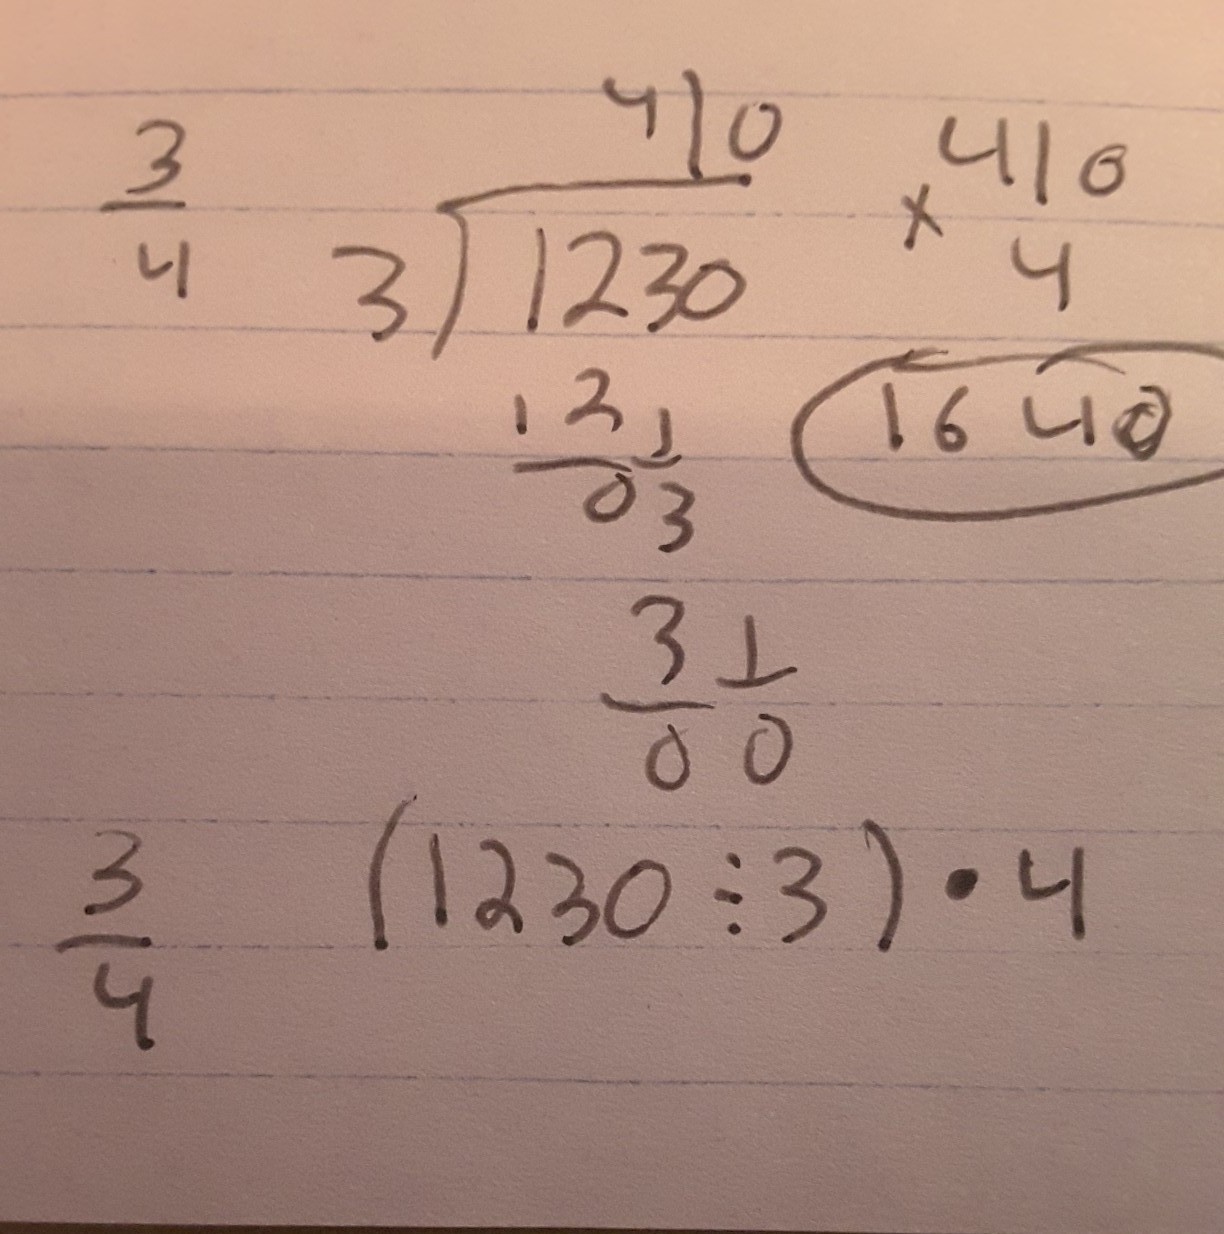 3 410 410
4 3)1230 × 4
12 1640
03
3
00
3 (1230÷3)•4
4